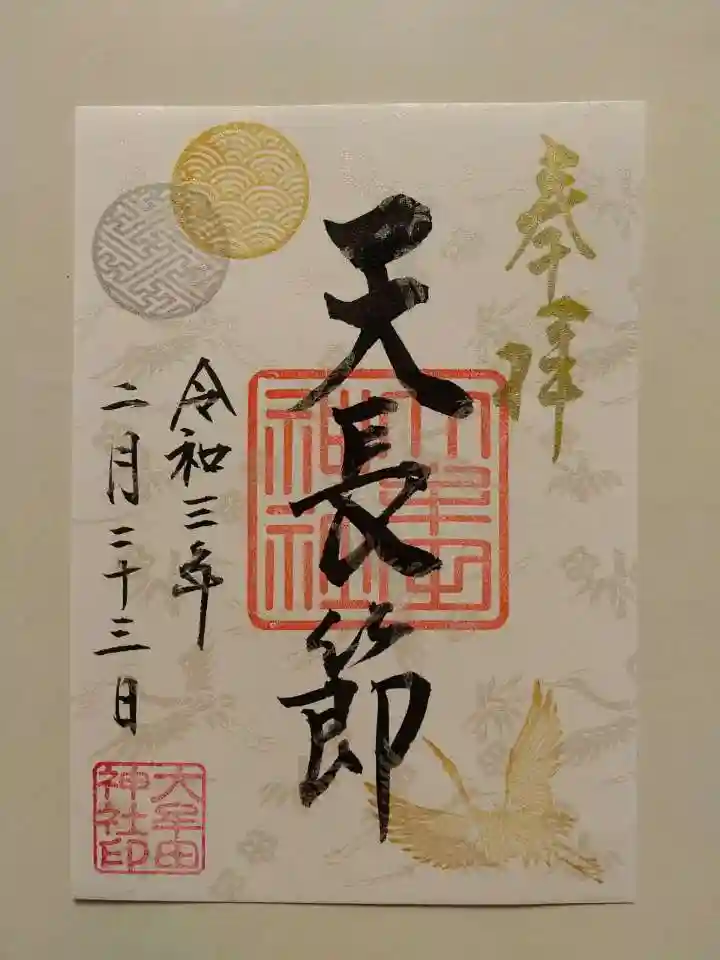 奉拝
天長節
令和三年
二月二十三日
大牟田
神社印